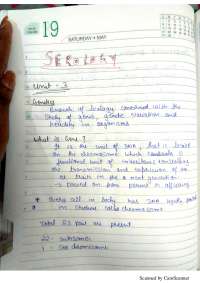 19
SATURDAY • MAY
SEROLOGY
Unit - 3
Genetics
Branch of biology concerned with the
study of genes, genetic variation and
heredity in organisms
What is Gene?
It is the unit of DNA, that is located
on the chromosome which
functional unit of inheritance controlling
the transmission and expression of one
or traits in the
→ passed on from parent to offspring
* Every cell in body has DNA
in structure called chromosomes
Total 23 pair are present
22 - autosomes
1 - Sex chromosomes
Scanned by CamScanner